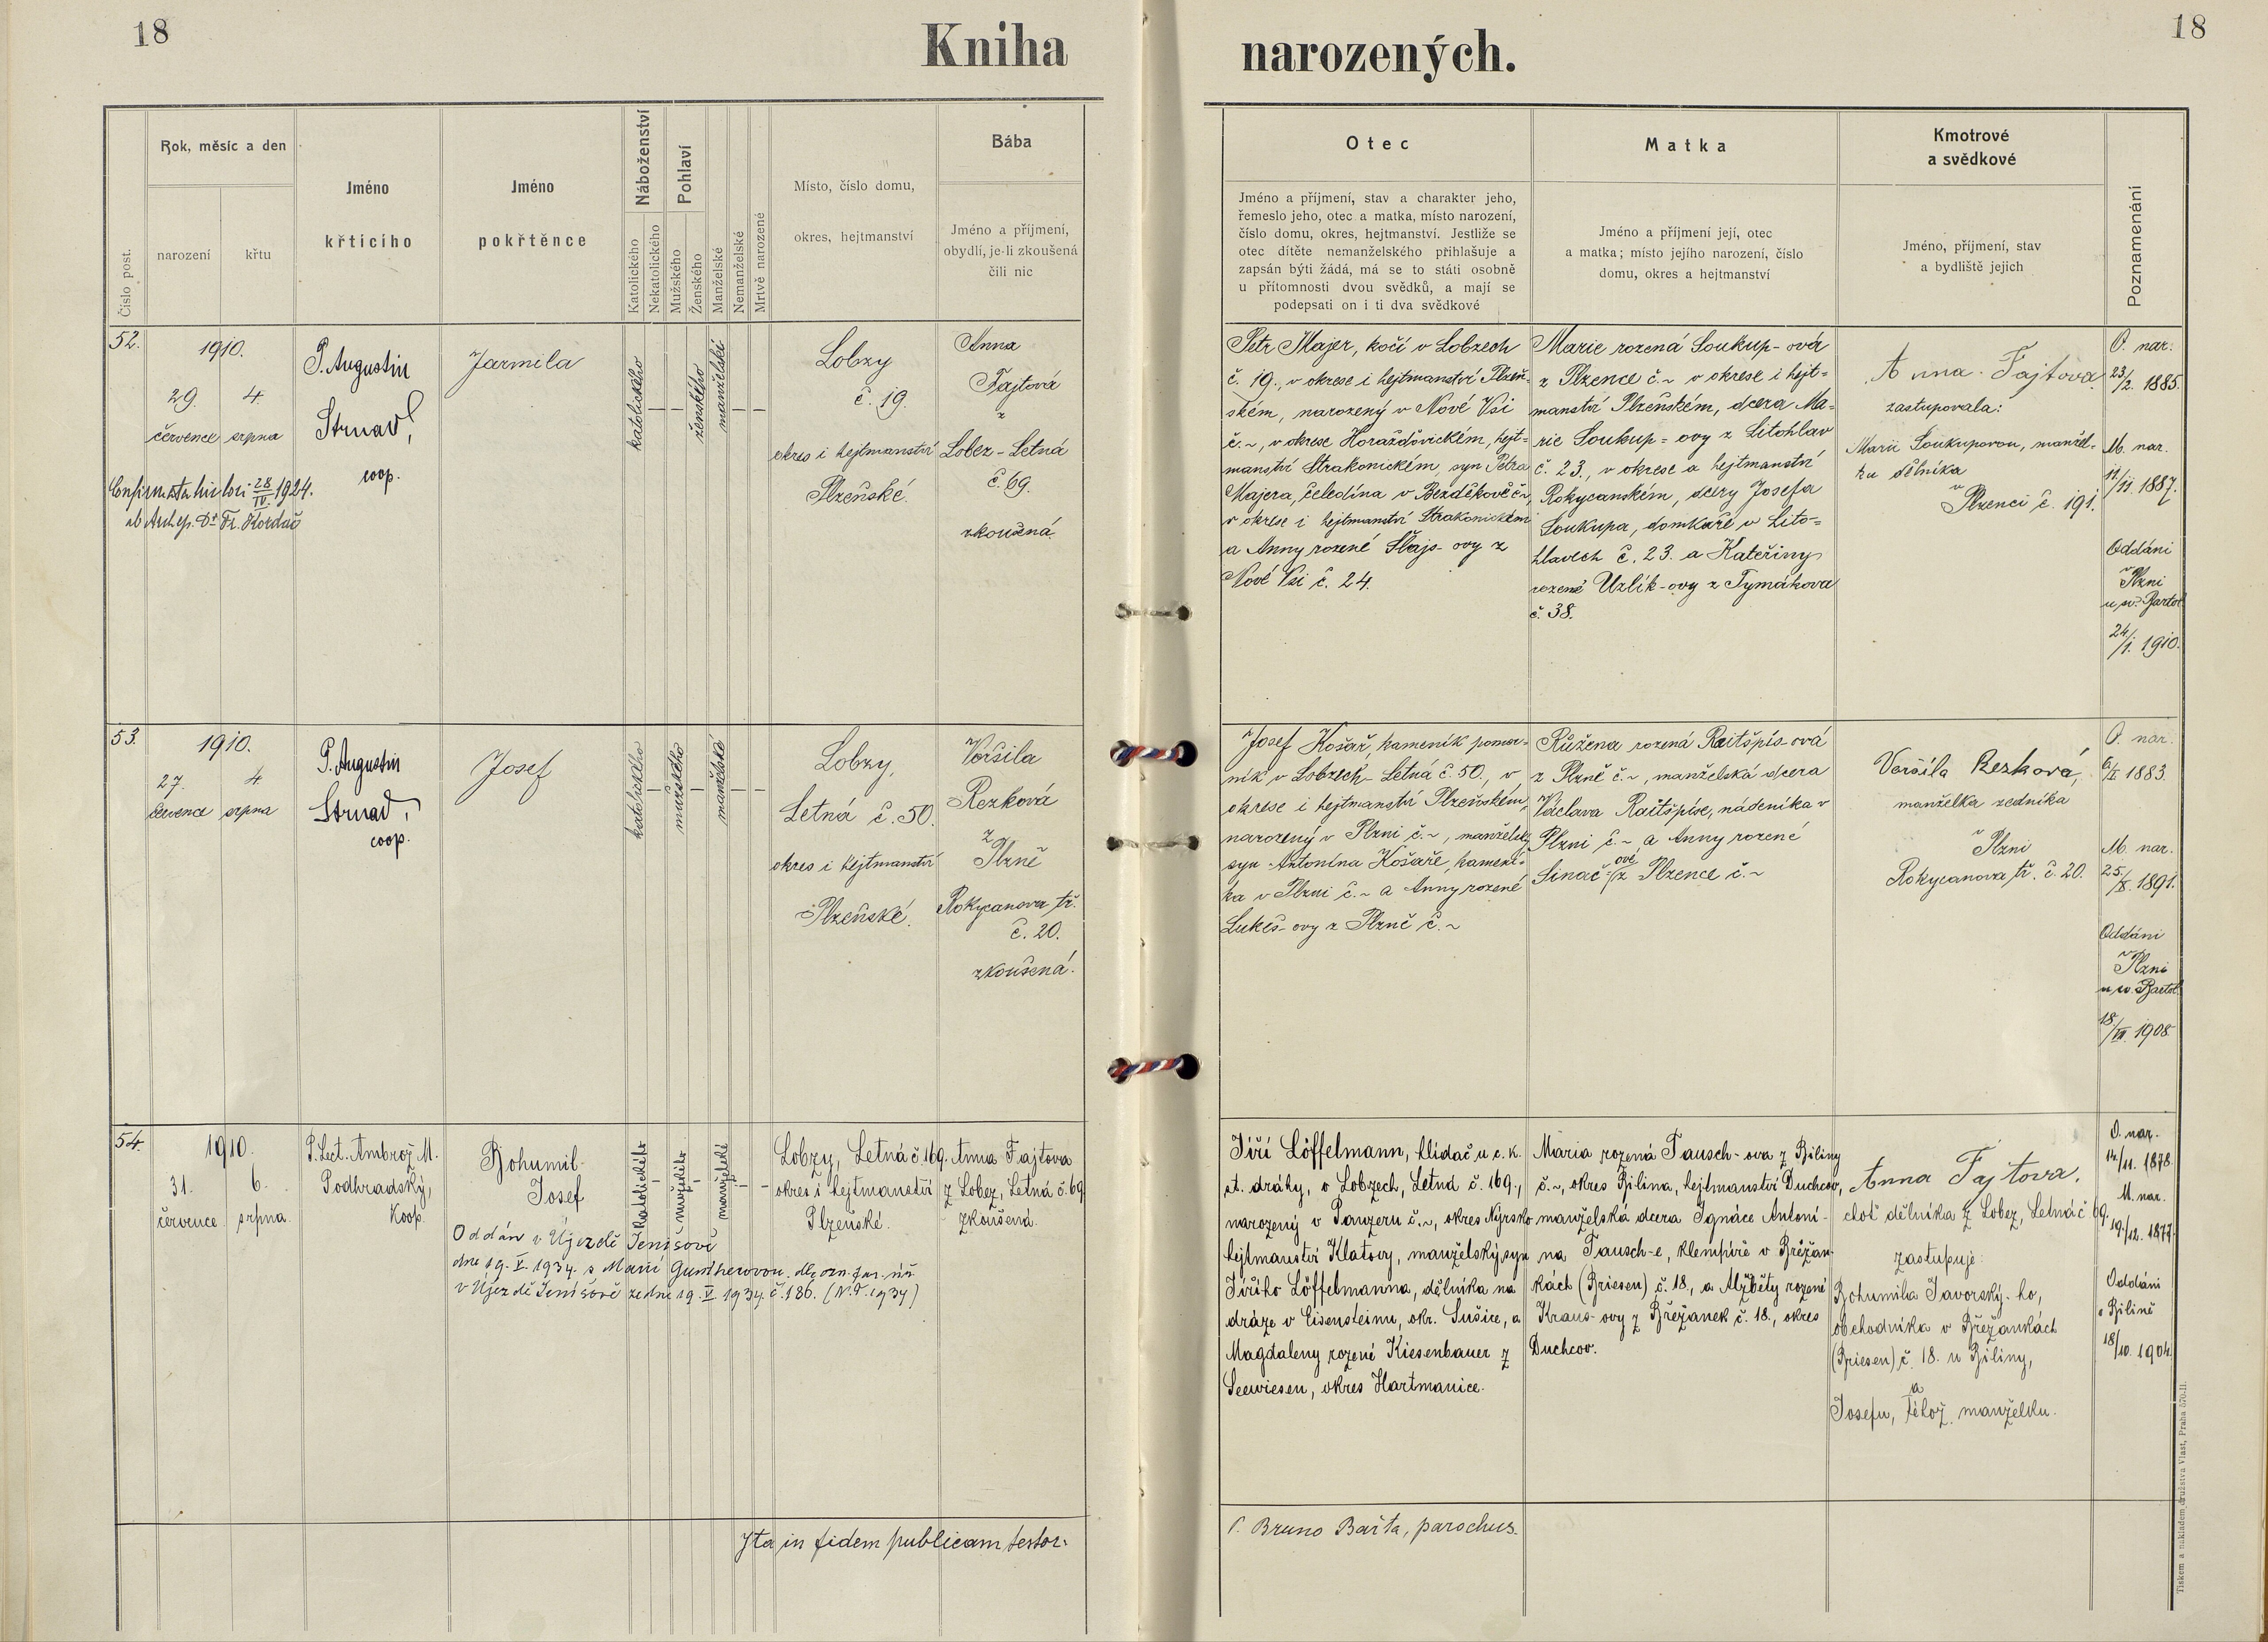 18
Kniha
narozených.
18
Číslo post.
Rok, měsíc a den
narození
křtu
Jméno
křtícího
Jméno
pokřtěnce
Náboženství
Katolického
Nekatolického
Pohlaví
Mužského
Ženského
Manželské
Nemanželské
Mrtvě narozené
Místo, číslo domu,
okres, hejtmanství
Bába
Jméno a příjmení,
obydlí, je-li zkoušená
čili nic
Otec
Jméno a příjmení, stav a charakter jeho,
řemeslo jeho, otec a matka, místo narození,
číslo domu, okres, hejtmanství. Jestliže se
otec dítěte nemanželského přihlašuje a
zapsán býti žádá, má se to státi osobně
u přítomnosti dvou svědků, a mají se
podepsati on i ti dva svědkové
Matka
Jméno a příjmení její, otec
a matka; místo jejího narození, číslo
domu, okres a hejtmanství
Kmotrové
a svědkové
Jméno, příjmení, stav
a bydliště jejich
Poznamenání
52.
1910.
29. 4.
července srpna
Confirmata hic loci 28/IV. 1924.
ab Archep. Dr Fr. Kordač
P. Augustin
Strnad,
coop.
Jarmila
katolického
—
—
ženského
manželské
—
—
Lobzy
č. 19.
okres i hejtmanství
Plzeňské.
Anna
Fajtová
z
Lobez - Letná
č. 69.
zkoušená.
Petr Majer, kočí v Lobzech
č. 19., v okrese i hejtmanství Plzeň-
ském, narozený v Nové Vsi
č. ~, v okrese Horažďovickém, hejt=
manství Strakonickém, syn Petra
Majera, čeledína v Bezděkově č. ~,
v okrese i hejtmanství Strakonickém
a Anny rozené Šlajs- ovy z
Nové Vsi č. 24.
Marie rozená Soukup- ová
z Plzence č. ~ v okrese i hejt=
manství Plzeňském, dcera Ma=
rie Soukup= ovy z Litohlav
č. 23., v okrese a hejtmanství
Rokycanském, dcery Josefa
Soukupa, domkáře v Lito=
hlavech č. 23. a Kateřiny
rozené Uzlík- ovy z Tymákova
č. 38.
Anna Fajtova
zastupovala:
Marii Soukupovou, manžel-
ku dělníka
v
Plzenci č. 191.
O. nar.
23/2. 1885.
M. nar.
11/11. 1887.
Oddáni
v
Plzni
u sv. Bartol.
24/1. 1910.
53.
1910.
27. 4.
července srpna
P. Augustin
Strnad,
coop.
Josef
katolického
—
mužského
—
manželské
—
—
Lobzy,
Letná č. 50.
okres i hejtmanství
Plzeňské.
Voršila
Rezková
z
Plzně
Rokycanova tř.
č. 20.
zkoušená.
Josef Košař, kameník pomoc-
ník v Lobzech- Letná č. 50., v
okrese i hejtmanství Plzeňském,
narozený v Plzni č. ~, manželský
syn Antonína Košaře, kamení-
ka v Plzni č. ~ a Anny rozené
Lukeš- ovy z Plzně č. ~
Růžena rozená Raitšpís- ová
z Plzně č. ~, manželská dcera
Václava Raitšpíse, nádeníka v
Plzni č. ~, a Anny rozené
Sinač- ové z Plzence č. ~
Voršila Rezková,
manželka zedníka
v
Plzni
Rokycanova tř. č. 20.
O. nar.
6/X 1883.
M. nar.
25./X. 1891.
Oddáni
v
Plzni
u sv. Bartol.
18/VII. 1908
54.
1910.
31. 6.
července srpna.
P. Lect. Ambrož M.
Podhradský,
Koop.
Bohumil-
Josef
Oddán v Újezdě Jenišově
dne 19. V. 1934. s Marií Güntherovou. dle ozn. far. úř.
v Újezdě Jenišově ze dne 19. V. 1934. č. 186. (N.T. 1934)
katolického
-
mužského
-
manželské
-
-
Lobzy, Letná č. 169.
okres i hejtmanství
Plzeňské.
Anna Fajtova
z Lobez, Letná č. 69.
zkoušená.
Jiří Löffelmann, hlídač u c. k.
st. dráhy, v Lobzech, Letná č. 169.,
narozený v Panzeru č. ~, okres Nýrsko
hejtmanství Klatovy, manželský syn
Jiřího Löffelmanna, dělníka na
dráze v Eisensteinu, okr. Sušice, a
Magdaleny rozené Kiesenbauer z
Seewiesen, okres Hartmanice.
Maria rozená Tausch- ova z Biliny
č. ~, okres Bilina, hejtmanství Duchcov,
manželská dcera Ignáce Antoní-
na Tausch-e, klempíře v Břežan-
kách (Briesen) č. 18., a Alžběty rozené
Kraus- ovy z Břežanek č. 18., okres
Duchcov.
Anna Fajtova,
choť dělníka z Lobez, Letná č. 69.
zastupuje:
Bohumila Javorský- ho,
obchodníka v Břežankách
(Briesen) č. 18. u Biliny,
a
Josefu, téhož manželku.
O. nar.
14./11. 1878.
M. nar.
19./12. 1877.
Oddáni
v Bilině
18/10. 1904.
Ita in fidem publicam testor.
P. Bruno Bařta, parochus.
Tiskem a nákladem družstva Vlast, Praha 570-II.